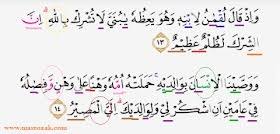 وَاِذْ قَالَ لُقْمٰنُ لِابْنِهٖ وَهُوَ يَعِظُهٗ يٰبُنَيَّ لَا تُشْرِكْ بِاللّٰهِ ۗاِنَّ
الشِّرْكَ لَظُلْمٌ عَظِيْمٌ ١٣
وَوَصَّيْنَا الْاِنْسَانَ بِوَالِدَيْهِۚ حَمَلَتْهُ اُمُّهٗ وَهْنًا عَلٰى وَهْنٍ وَّفِصَالُهٗ
فِيْ عَامَيْنِ اَنِ اشْكُرْ لِيْ وَلِوَالِدَيْكَۗ اِلَيَّ الْمَصِيْرُ ١٤
www.masrozak.com